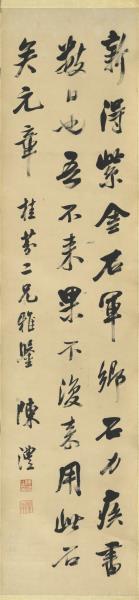 新得紫金石軍鄉石力疾書
數日也吾不來果不復來用此石
矣元章
桂芬二兄雅鑒 陳澧